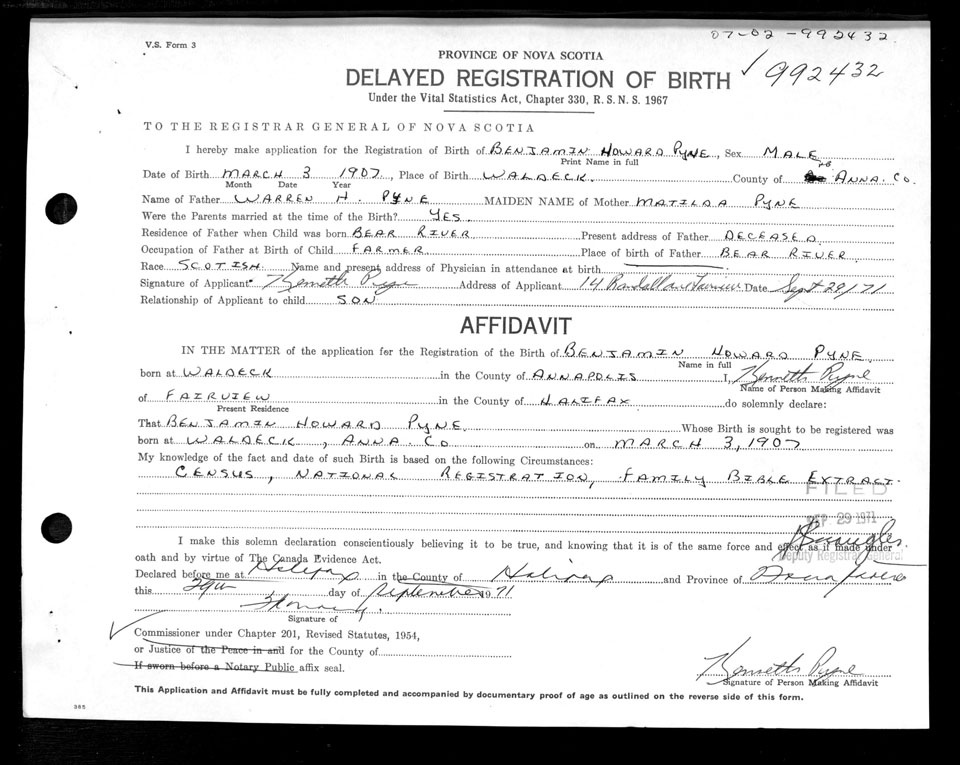 07-02-992432
V.S. Form 3
PROVINCE OF NOVA SCOTIA
DELAYED REGISTRATION OF BIRTH
✓ 992432
Under the Vital Statistics Act, Chapter 330, R.S.N.S. 1967
TO THE REGISTRAR GENERAL OF NOVA SCOTIA
I hereby make application for the Registration of Birth of BENJAMIN HOWARD PYNE, Sex MALE
Print Name in full
Date of Birth MARCH 3 1907, Place of Birth WALDECK County of ANNA. CO.
Month Date Year
Name of Father WARREN H. PYNE MAIDEN NAME of Mother MATILDA PYNE
Were the Parents married at the time of the Birth? YES.
Residence of Father when Child was born BEAR RIVER Present address of Father DECEASED
Occupation of Father at Birth of Child FARMER Place of birth of Father BEAR RIVER
Race SCOTISH Name and present address of Physician in attendance at birth
Signature of Applicant Kenneth Pyne Address of Applicant 14 Date Sept 29/71
Relationship of Applicant to child SON
AFFIDAVIT
IN THE MATTER of the application for the Registration of the Birth of BENJAMIN HOWARD PYNE
Name in full
born at WALDECK in the County of ANNAPOLIS I, Kenneth Pyne
Name of Person Making Affidavit
of FAIRVIEW in the County of HALIFAX do solemnly declare:
Present Residence
That BENJAMIN HOWARD PYNE Whose Birth is sought to be registered was
born at WALDECK, ANNA. CO on MARCH 3, 1907
My knowledge of the fact and date of such Birth is based on the following Circumstances:
CENSUS, NATIONAL REGISTRATION, FAMILY BIBLE EXTRACT.
FILED
SEP 29 1971
I make this solemn declaration conscientiously believing it to be true, and knowing that it is of the same force and effect as if made under
oath and by virtue of The Canada Evidence Act.
Deputy Registrar General
Declared before me at Halifax in the County of Halifax and Province of Nova Scotia
this 29th day of September 1971
Signature of
Commissioner under Chapter 201, Revised Statutes, 1954,
or Justice of the Peace in and for the County of
If sworn before a Notary Public affix seal.
Kenneth Pyne
Signature of Person Making Affidavit
This Application and Affidavit must be fully completed and accompanied by documentary proof of age as outlined on the reverse side of this form.
365